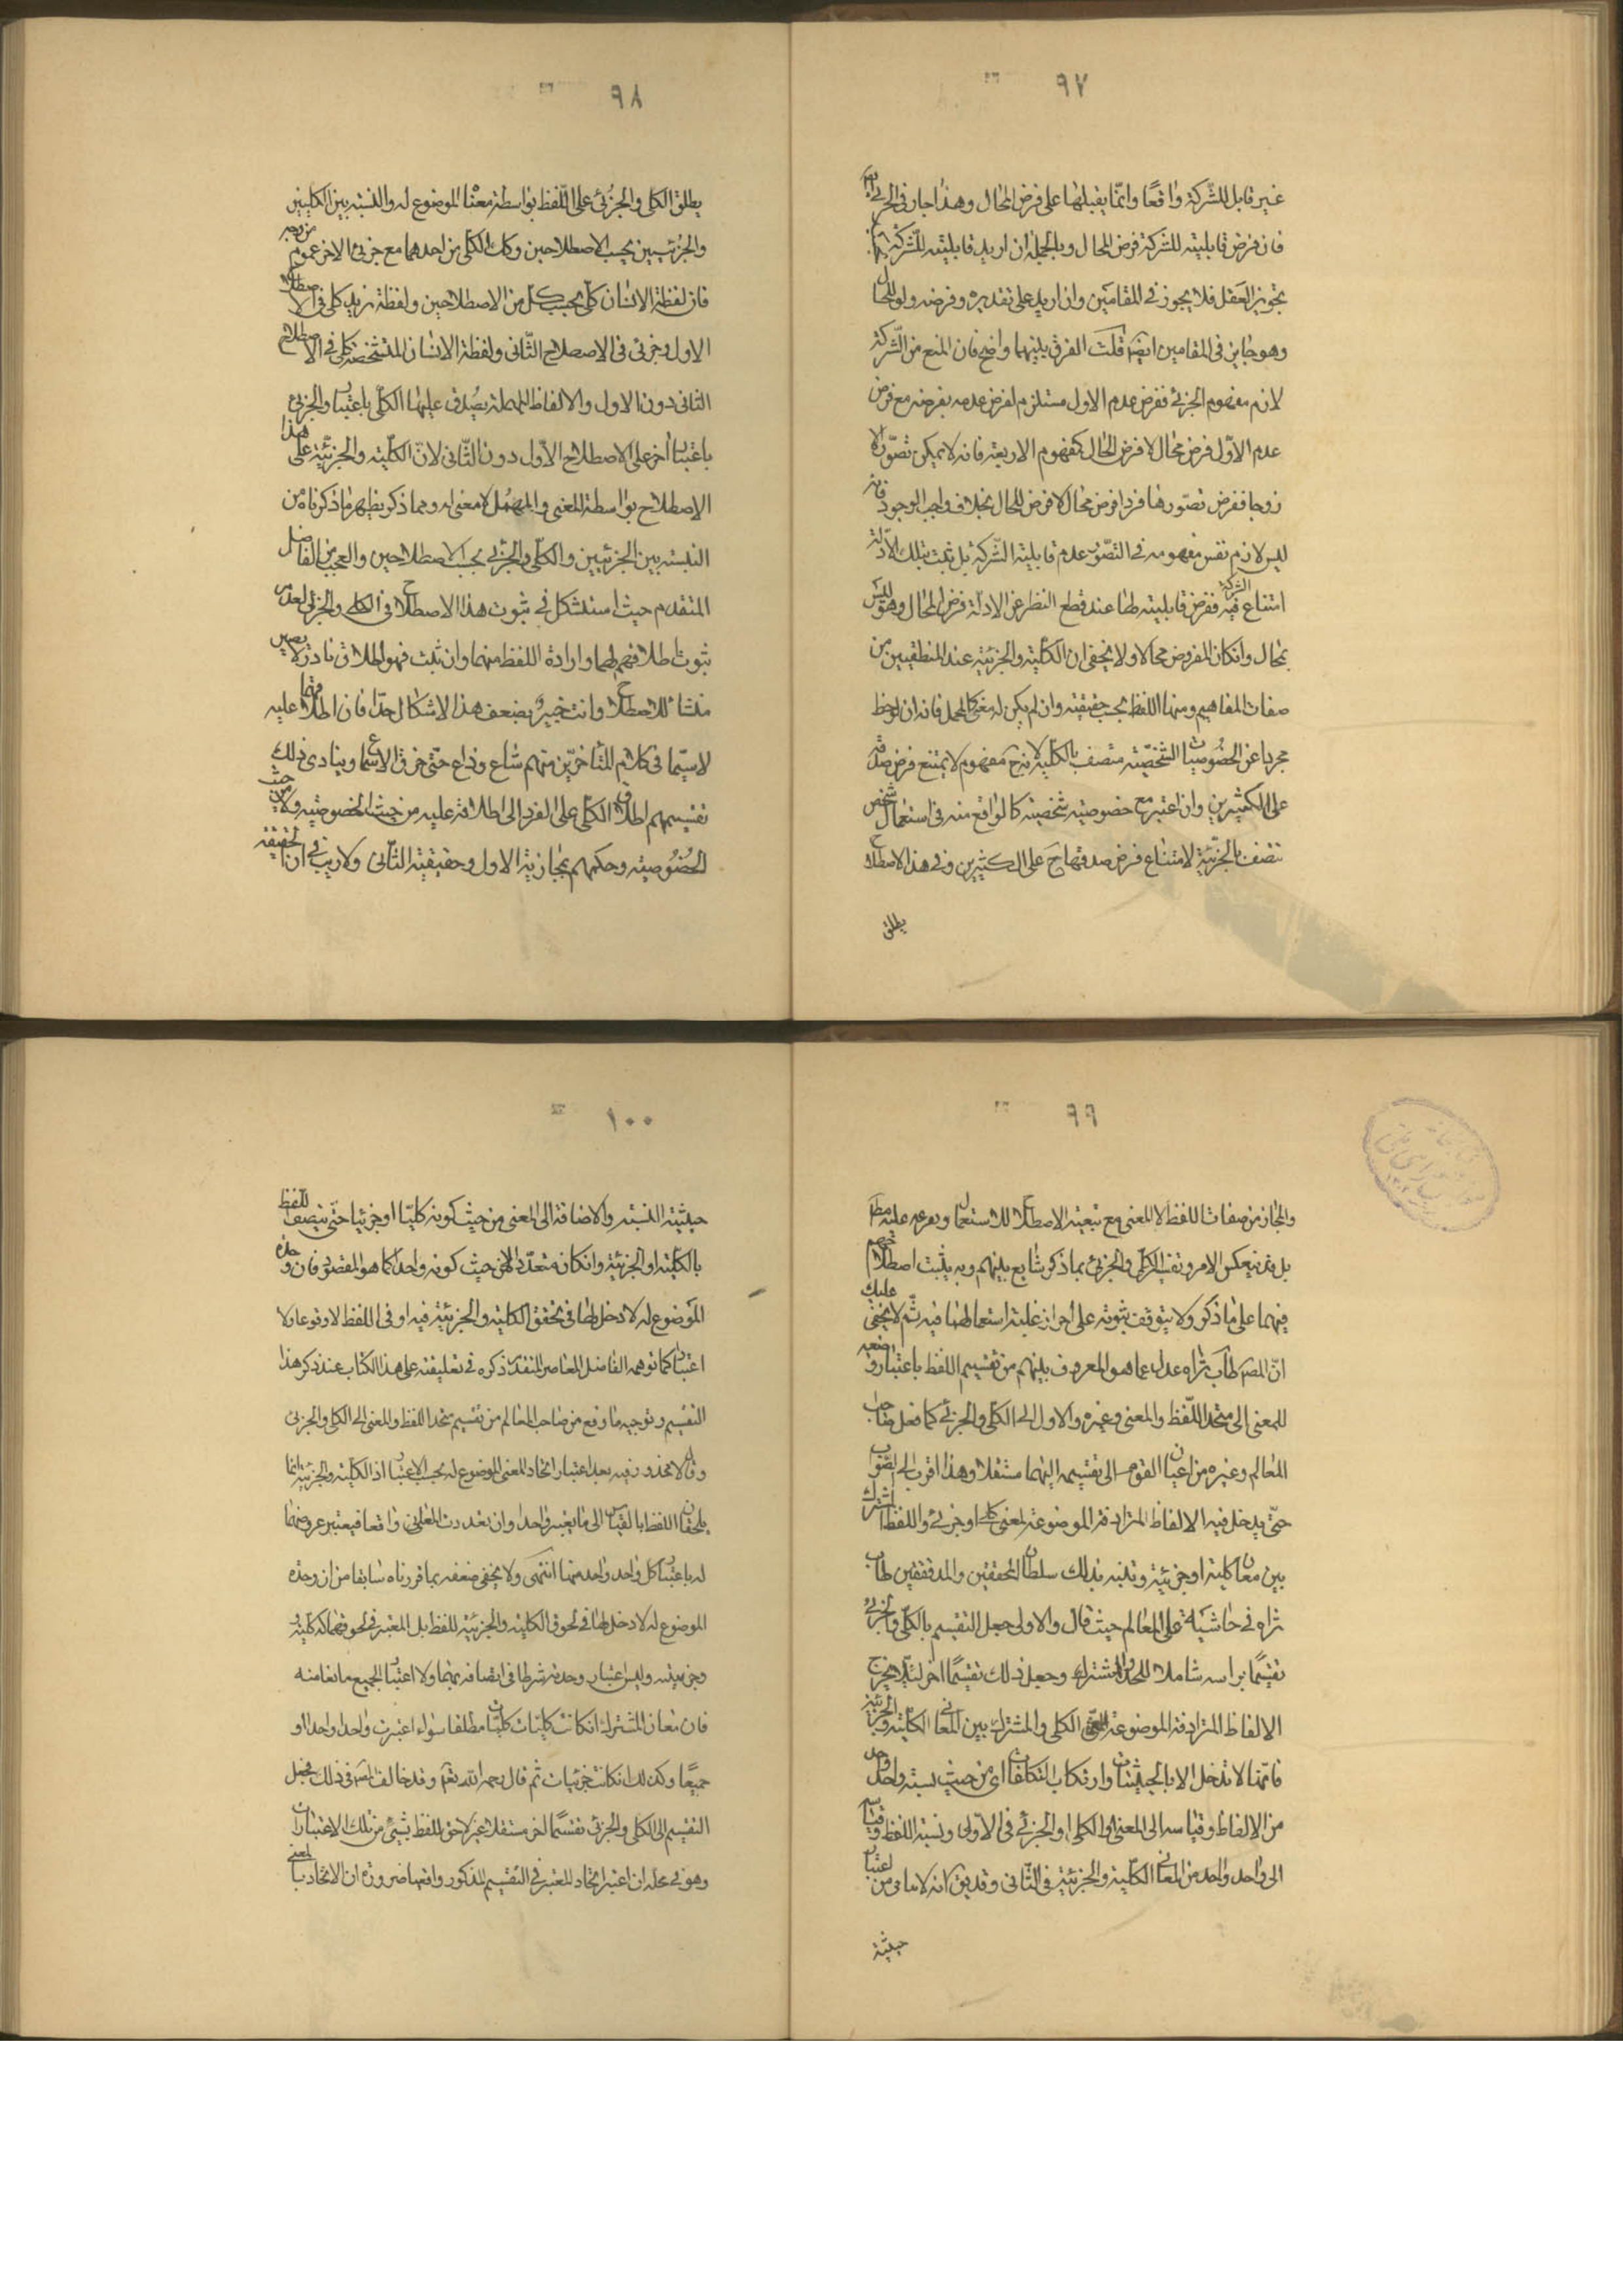 ٩٧
غير قابل للشركة واقعًا وانّما يقبلها على فرض المحال وهذا جار في الجزئي
فان فرض قابليته للشركة فرض المحال وبالجملة ان اريد قابليته للشركة
بتجويز العقل فلا يجوز في المقامين وان اريد على تقديره وفرضه ولو للمحال
وهو جايز في المقامين ايضا قلت الفرق بينهما واضح فان المنع من الشّركة
لازم مفهوم الجزئي ففرض عدم الاول مستلزم لفرض عدمه بفرضه مع فرض
عدم الاوّل فرض محال لا فرض المحال كمفهوم الاربعة فانه لا يمكن تصوّر الا
زوجا ففرض تصوّرها فردا فرض محال لا فرض المحال بخلاف واجب الوجود فانه
ليس لازم نفس مفهومه في التصوّر عدم قابلية الشّركة بل ثبت بتلك الأدلة
امتناع الشركة فيه ففرض قابليته لها عند قطع النظر عن الادلة فرض المحال وهو ليس
بمحال وانكان المفروض محالا ولا يخفى ان الكليّة والجزئية عند المنطقيين من
صفات المفاهيم ومنها اللفظ بحسب حقيقته وان لم يكن له معنى كالمهمل فانه ان لوحظ
مجردا عن الخصوصيات الشخصّية متصف بالكليّة لانه ح مفهوم لا يمتنع فرض صدقه
على الكثيرين وان اعتبر مع خصوصية شخصية كالواقع منه في استعمال شخص
تتصف بالجزئيّة لامتناع فرض صدقها ح على الكثيرين وفي هذا الاصطلاح
يطلق
٩٨
يطلق الكلي والجزُئي على اللّفظ بواسطة معناه الموضوع له والنسبة بين الكليين
والجزُئيين بحسب الاصطلاحين وكذا الكلّى من احدهما مع جزئي الاخر عموم من وجه
فان لفظة الانسان كلّي بحسب كل من الاصطلاحين ولفظة زيد كلى في الاصطلاح
الاول وجزئى في الاصطلاح الثّانى ولفظة الانسان المتشخصة كلي في الاصطلاح
الثانى دون الاول والالفاظ المهملة يصُدق عليها الكلّى باعتبار والجزئي
باعتبار أخر على الاصطلاح الأوّل دون الثّانى لانّ الكليّة والجزئيّة على هذا
الاصطلاح بواسطة المعنى والمهمُل لا معنى له ومما ذكر يظهر ما ذكرناه من
النسبة بين الجزئيين والكلّي والجزئي بحسب الاصطلاحين والعجب من الفاضل
المتقدم حيث استشكل في ثبوت هذا الاصطلاح في الكلى والجزئى لعدم
ثبوت طلاقهم لهما وارادة اللفظ منهما وان ثبت فهو اطلاق نادر لا يصير
منشأ للاصطلاح وانت خبير بضعف هذا الاشكال جدّا فان اطلاقهما عليه
لاسيّما في كلام المتأخرّين منهم شاع وذاع حتّى خرق الاسماع وينادى بذلك
تقسيمهم اطلاق الكلّي على الفرد الى اطلاقه عليه من حيث الخصوصية ولا من حيث
الخُصُوصية وحكمهم بمجازية الاول وحقيقية الثّانى ولا ريب في ان الحقيقة
٩٩
والمجاز من صفات اللفظ لا المعنى مع تبعية الاصطلاح للاستعمال وتفرعه عليه مط
بل قد ينعكس الامر وتقسيم الكلّي والجزئي بما ذكر شايع بينهم وبه يثبت اصطلاحهم
فيهما على ما ذكر ولا يتوقف ثبوته على احراز غلبة استعمالهما فيه ثمّ لا يخفى عليك
انّ المصـ طاب ثراه عدل عما هو المعروف بينهم من تقسيم اللفظ باعتبار وضعه
للمعنى الى متحد اللّفظ والمعنى وغيره والاول الى الكلّي والجزئي كما فعل صاحب
المعالم وغيره من اعيان القوم الى تقسيمه اليهما مستقلا وهذا اقرب الى الصّواب
حتّى يدخل فيه الالفاظ المترادفة الموضوعة لمعنى كلى اوجزئي واللفظ المشترك
بين معان كلية او جزئية وتنبه بذلك سلطان المحققين والمدققين طاب
ثراه في حاشية على المعالم حيث قال والاولى جعل التقسيم بالكلّي والجزئي
تقسيمًا براسه شاملا للمتحد والمشترك وجعل ذلك تقسيمًا اخر لئلا يخرج
الالفاظ المترادفة الموضوعة للمعنى الكلي والمشترك بين المعاني الكليّة والجزئية
فانّها لا تدخل الا بالحيثيات وارتكاب التكلفات اى من حيث نسبة واحد واحد
من الالفاظ وقياسه الى المعنى الكلى او الجزئي في الأولى ونسبة اللفظ وقياسه
الى واحد واحد من المعاني الكليّة والجزئيّة في الثّانى وقد يق انه لا من اعتبار
حيثية
١٠٠
حيثية النسبة والاضافة الى المعنى من حيث كونه كليّا او جزئيا حتّى يتصف اللفظ
بالكليّة او الجزئيّة وانكان متعدّدا لا من حيث كونه واحدا كما هو المقصود فان وحدة
الموضوع له لا دخل لها في تحقق الكلية والجزئيّة فيه او في اللفظ لا وقوعا ولا
اعتبارا كما توهمه الفاضل المعاصر المتقدّم ذكره في تعليقته على هذا الكتاب عند ذكر هذا
التقسيم وتوجيه ما وقع من صاحب المعالم من تقسيم متحد اللفظ والمعنى الى الكلي والجزئى
وقال لا محذور فيه بعد اعتبار اتحاد المعنى الموضوع له بحسب الاعتبار اذ الكليّة والجزئية انما
يلحقان اللفظ بالقياس الى ما يعتبر واحدا وان تعددت المعاني واقعا فيعتبر عروضهما
له باعتبار كل واحد واحد منها انتهى ولا يخفى ضعفه بما قررناه سابقا من ان وحدة
الموضوع له لا دخل لها في لحوق الكلية والجزئيّة للفظ بل المعتبر في لحوقهما له كليّته
وجزئيته وليس اعتبار وحدته شرطا في اتصافه بهما ولا اعتبار الجميع مانعا منه
فان معان المشترك انكانت كليّات كليّات مطلقا سواء اعتبرت واحدا واحدا او
جميعًا وكذلك انكانت جزئيات ثم قال رحمه الله نعم وقد خالف المصـ في ذلك فجعل
التقسيم الى الكلى والجزئى تقسيمًا اخر مستقلا غير لاحق للفظ بشيئ من تلك الاعتبارات
وهو في محله ان اعتبر اتحاد المعتبر في التقسيم المذكور واقعيا ضرورة ان الاتحاد بالمعنى